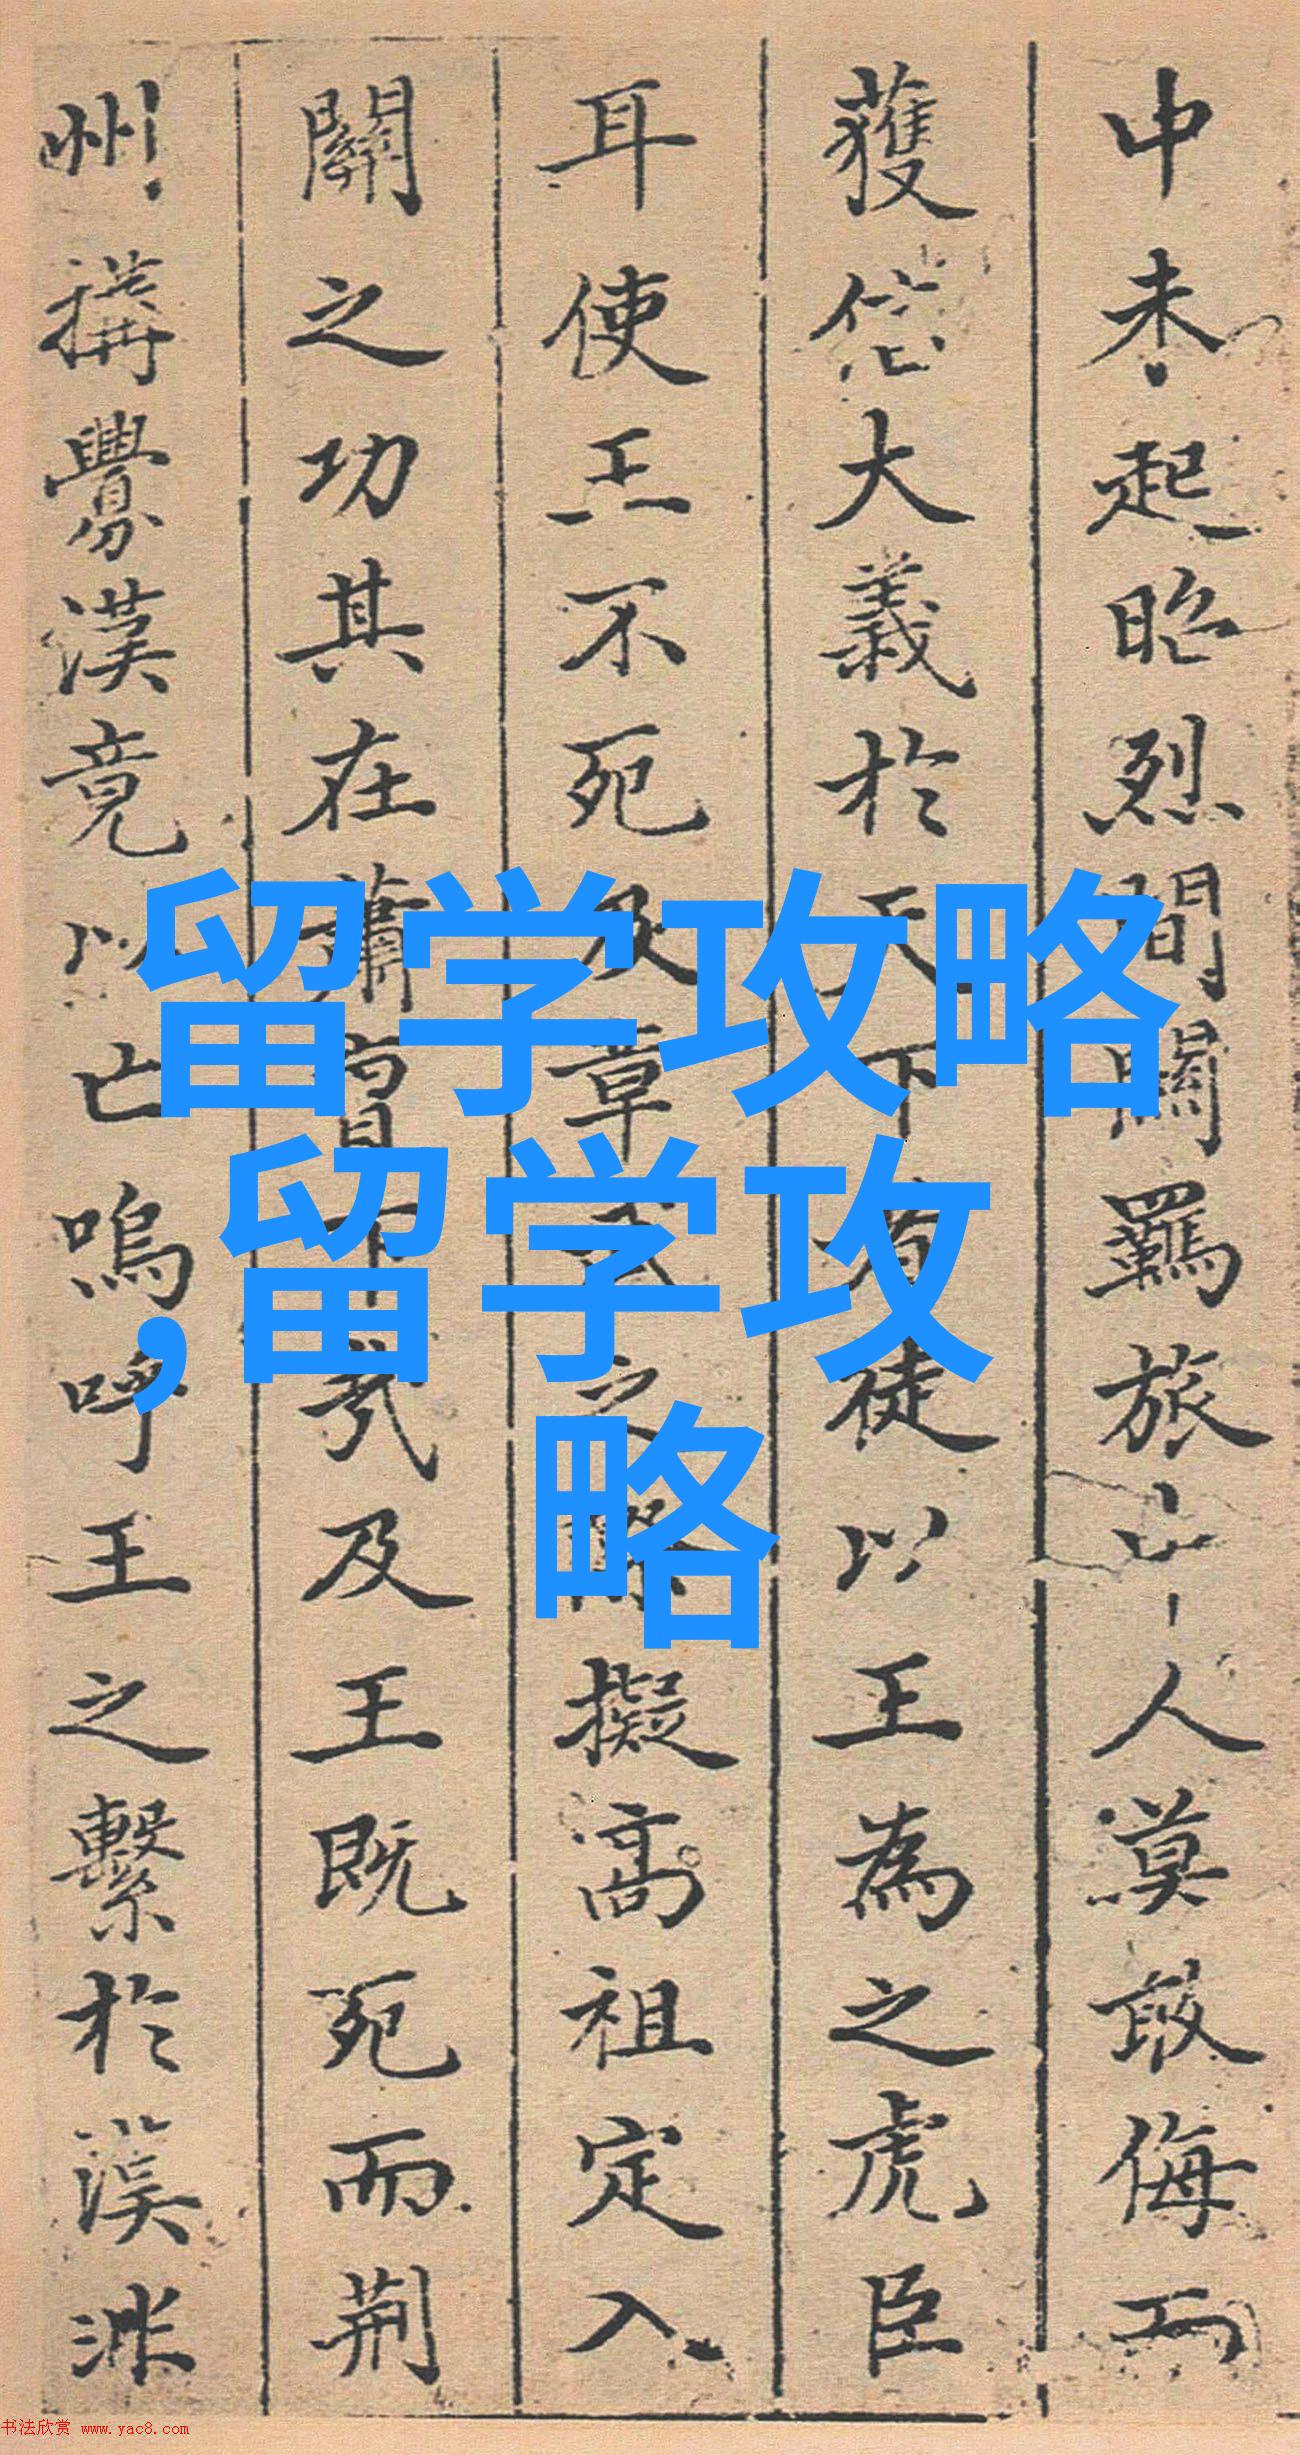 中未起昭烈間關羈旅一人漠敢侮而
獲信大義於天下者徒以王為之虎臣
耳使王不死及章武之際擬高祖定入
關之功其在蕭曹下矣及王既死而荊
州構釁漢竟以亡嗚呼王之繫於漢
留学攻略
,留学攻
略
书法欣赏 www.yac8.com